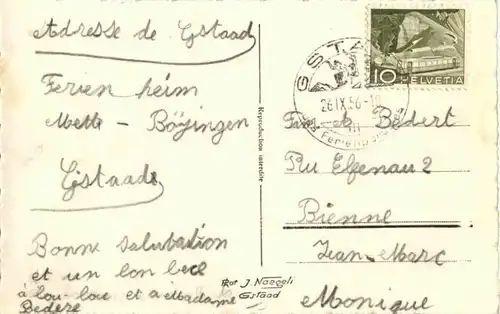 Adresse de Gstaad
Ferien heim
Mett - Böjingen
Gstaad
Bonne salutation
et un bon bec
à Lou-lou et a Madame
Bedere
Reproduction interdite
Phot J. Naegeli
Gstaad
GSTAAD
26 IX 56-10
10 HELVETIA
Fam. Bedert
Ru Elfenau 2
Bienne
Jean-Marc
Monique